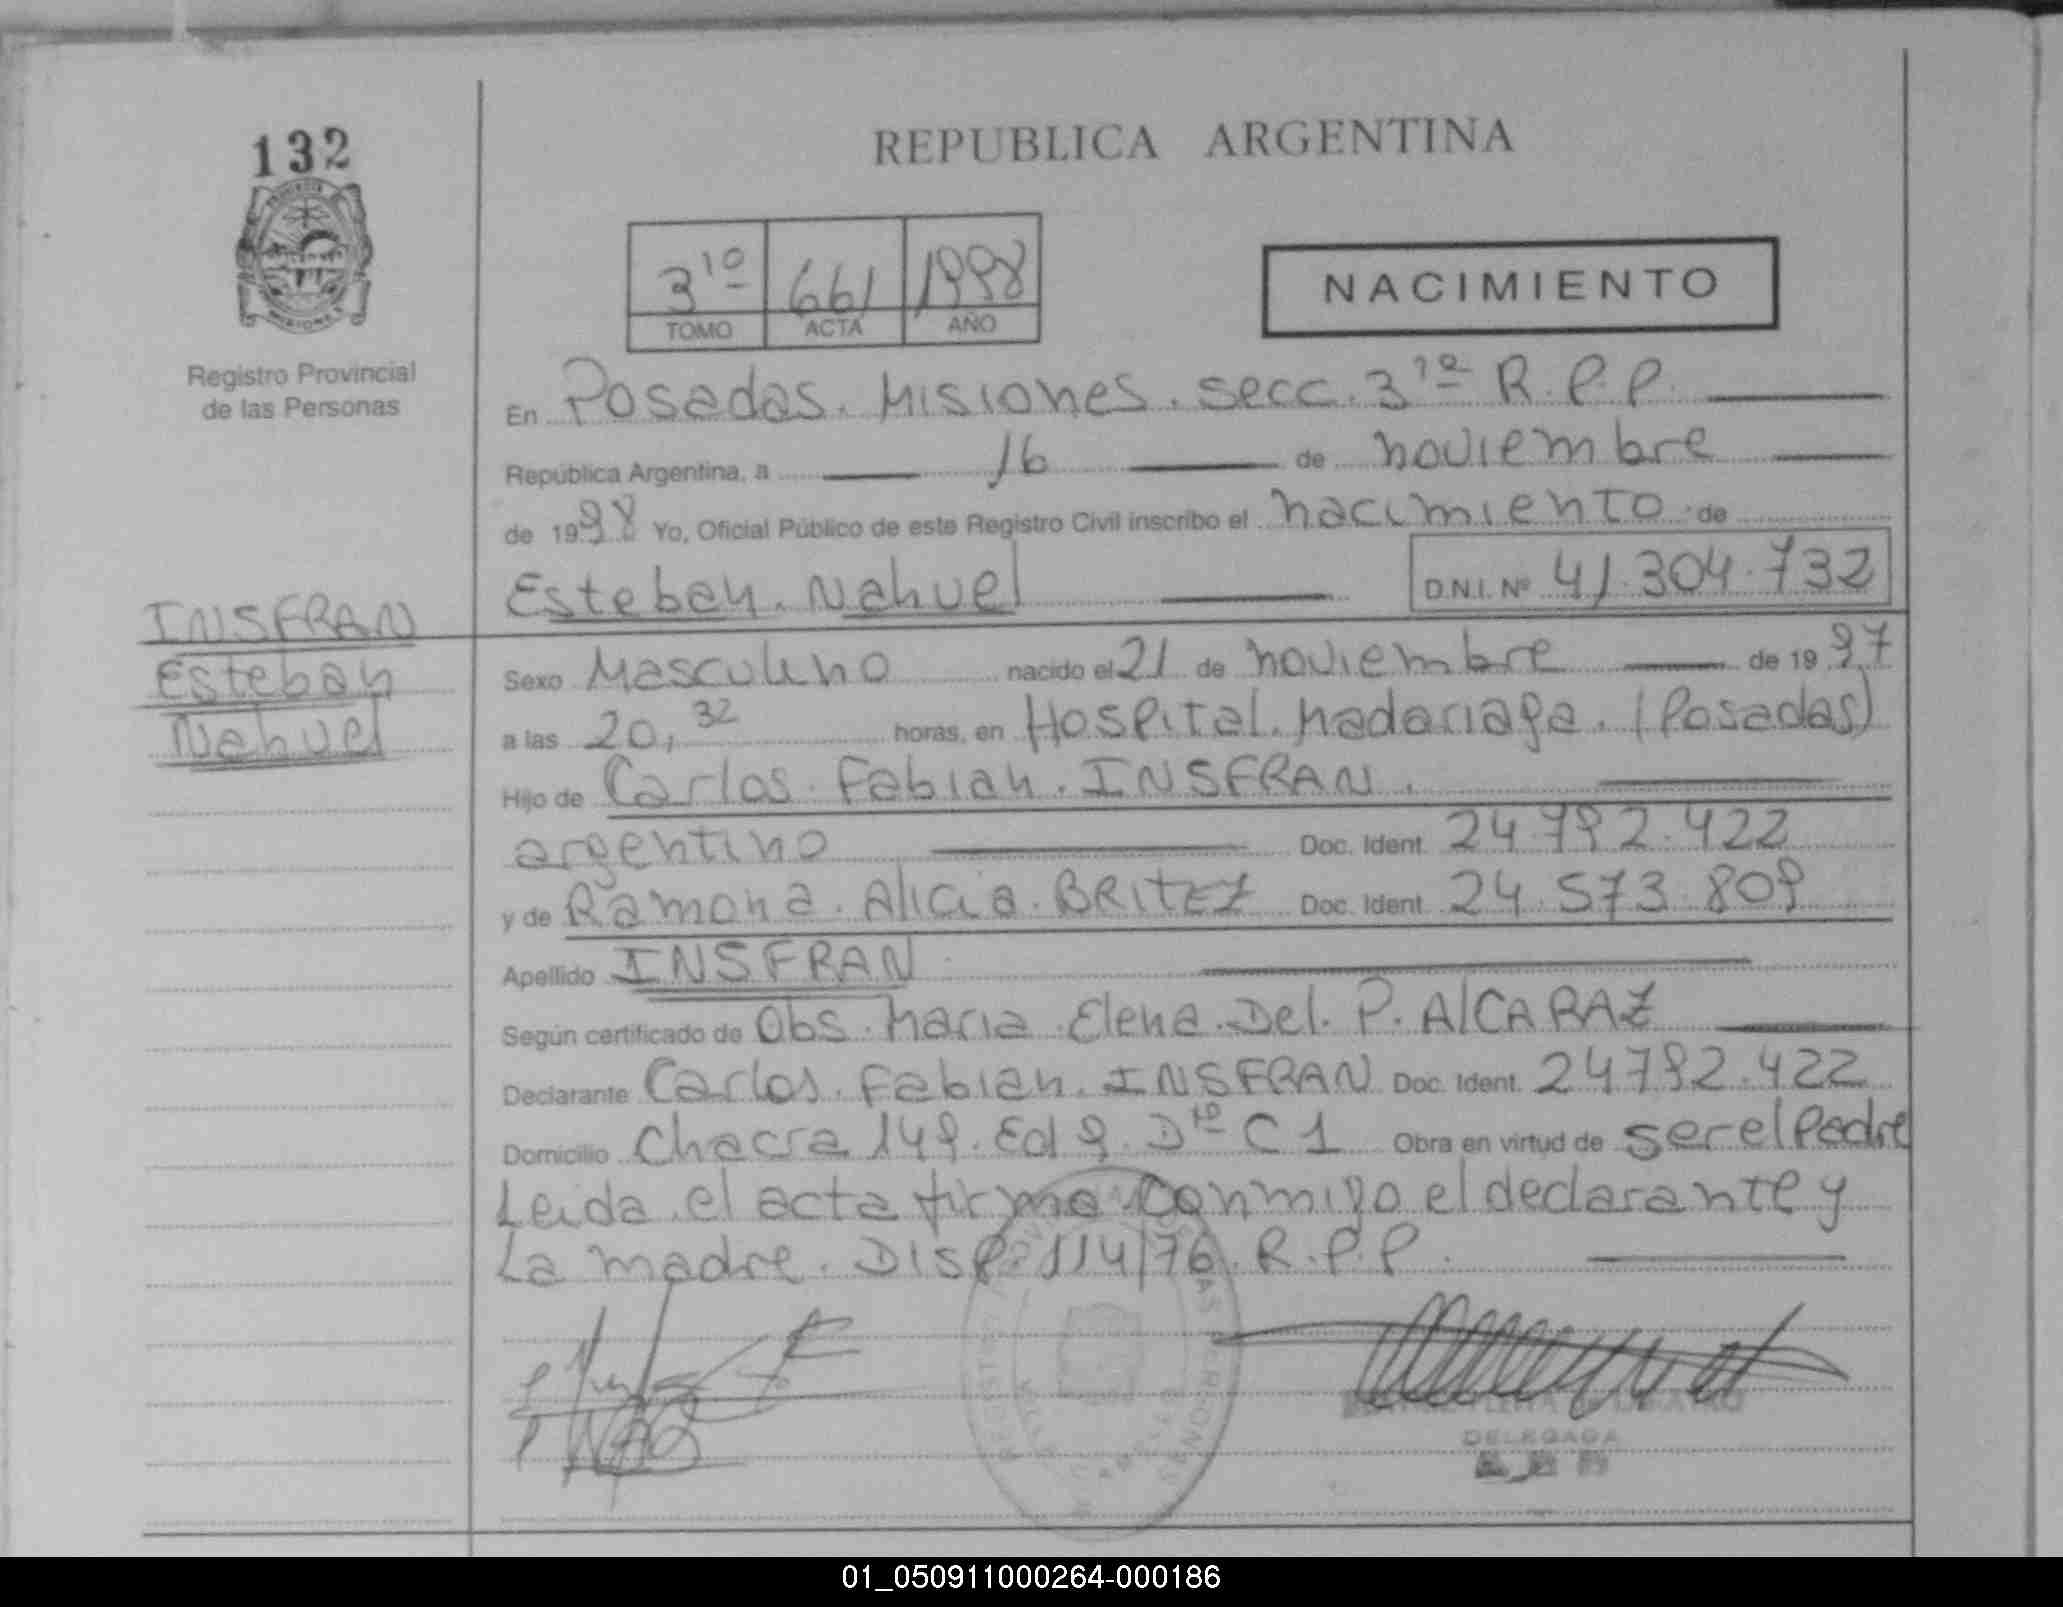 132
REPUBLICA ARGENTINA
MISIONES
Registro Provincial
de las Personas
3ro 661 1998
TOMO ACTA AÑO
NACIMIENTO
En Posadas. Misiones. secc. 3ra R.P.P.
República Argentina, a 16 de noviembre
de 1998 Yo, Oficial Público de este Registro Civil inscribo el nacimiento de
Esteban. Nahuel D.N.I. Nº 41.304.732
INSFRAN
Esteban
Nahuel
Sexo Masculino nacido el 21 de noviembre de 1997
a las 20,32 horas, en Hospital. Madariaga. (Posadas)
Hijo de Carlos. Fabian. INSFRAN.
argentino Doc. Ident. 24.792.422
y de Ramona. Alicia. BRITEZ Doc. Ident. 24.573.809
Apellido INSFRAN
Según certificado de Obs. Maria Elena. Del. P. AlCARAZ
Declarante Carlos. Fabian. INSFRAN Doc. Ident. 24792.422
Domicilio Chacra 149. Ed 9. Dto C 1 Obra en virtud de ser el Padre
Leida el acta firma conmigo el declarante y
La madre. Disp. 114/76. R.P.P.
DELEGADA
01_050911000264-000186